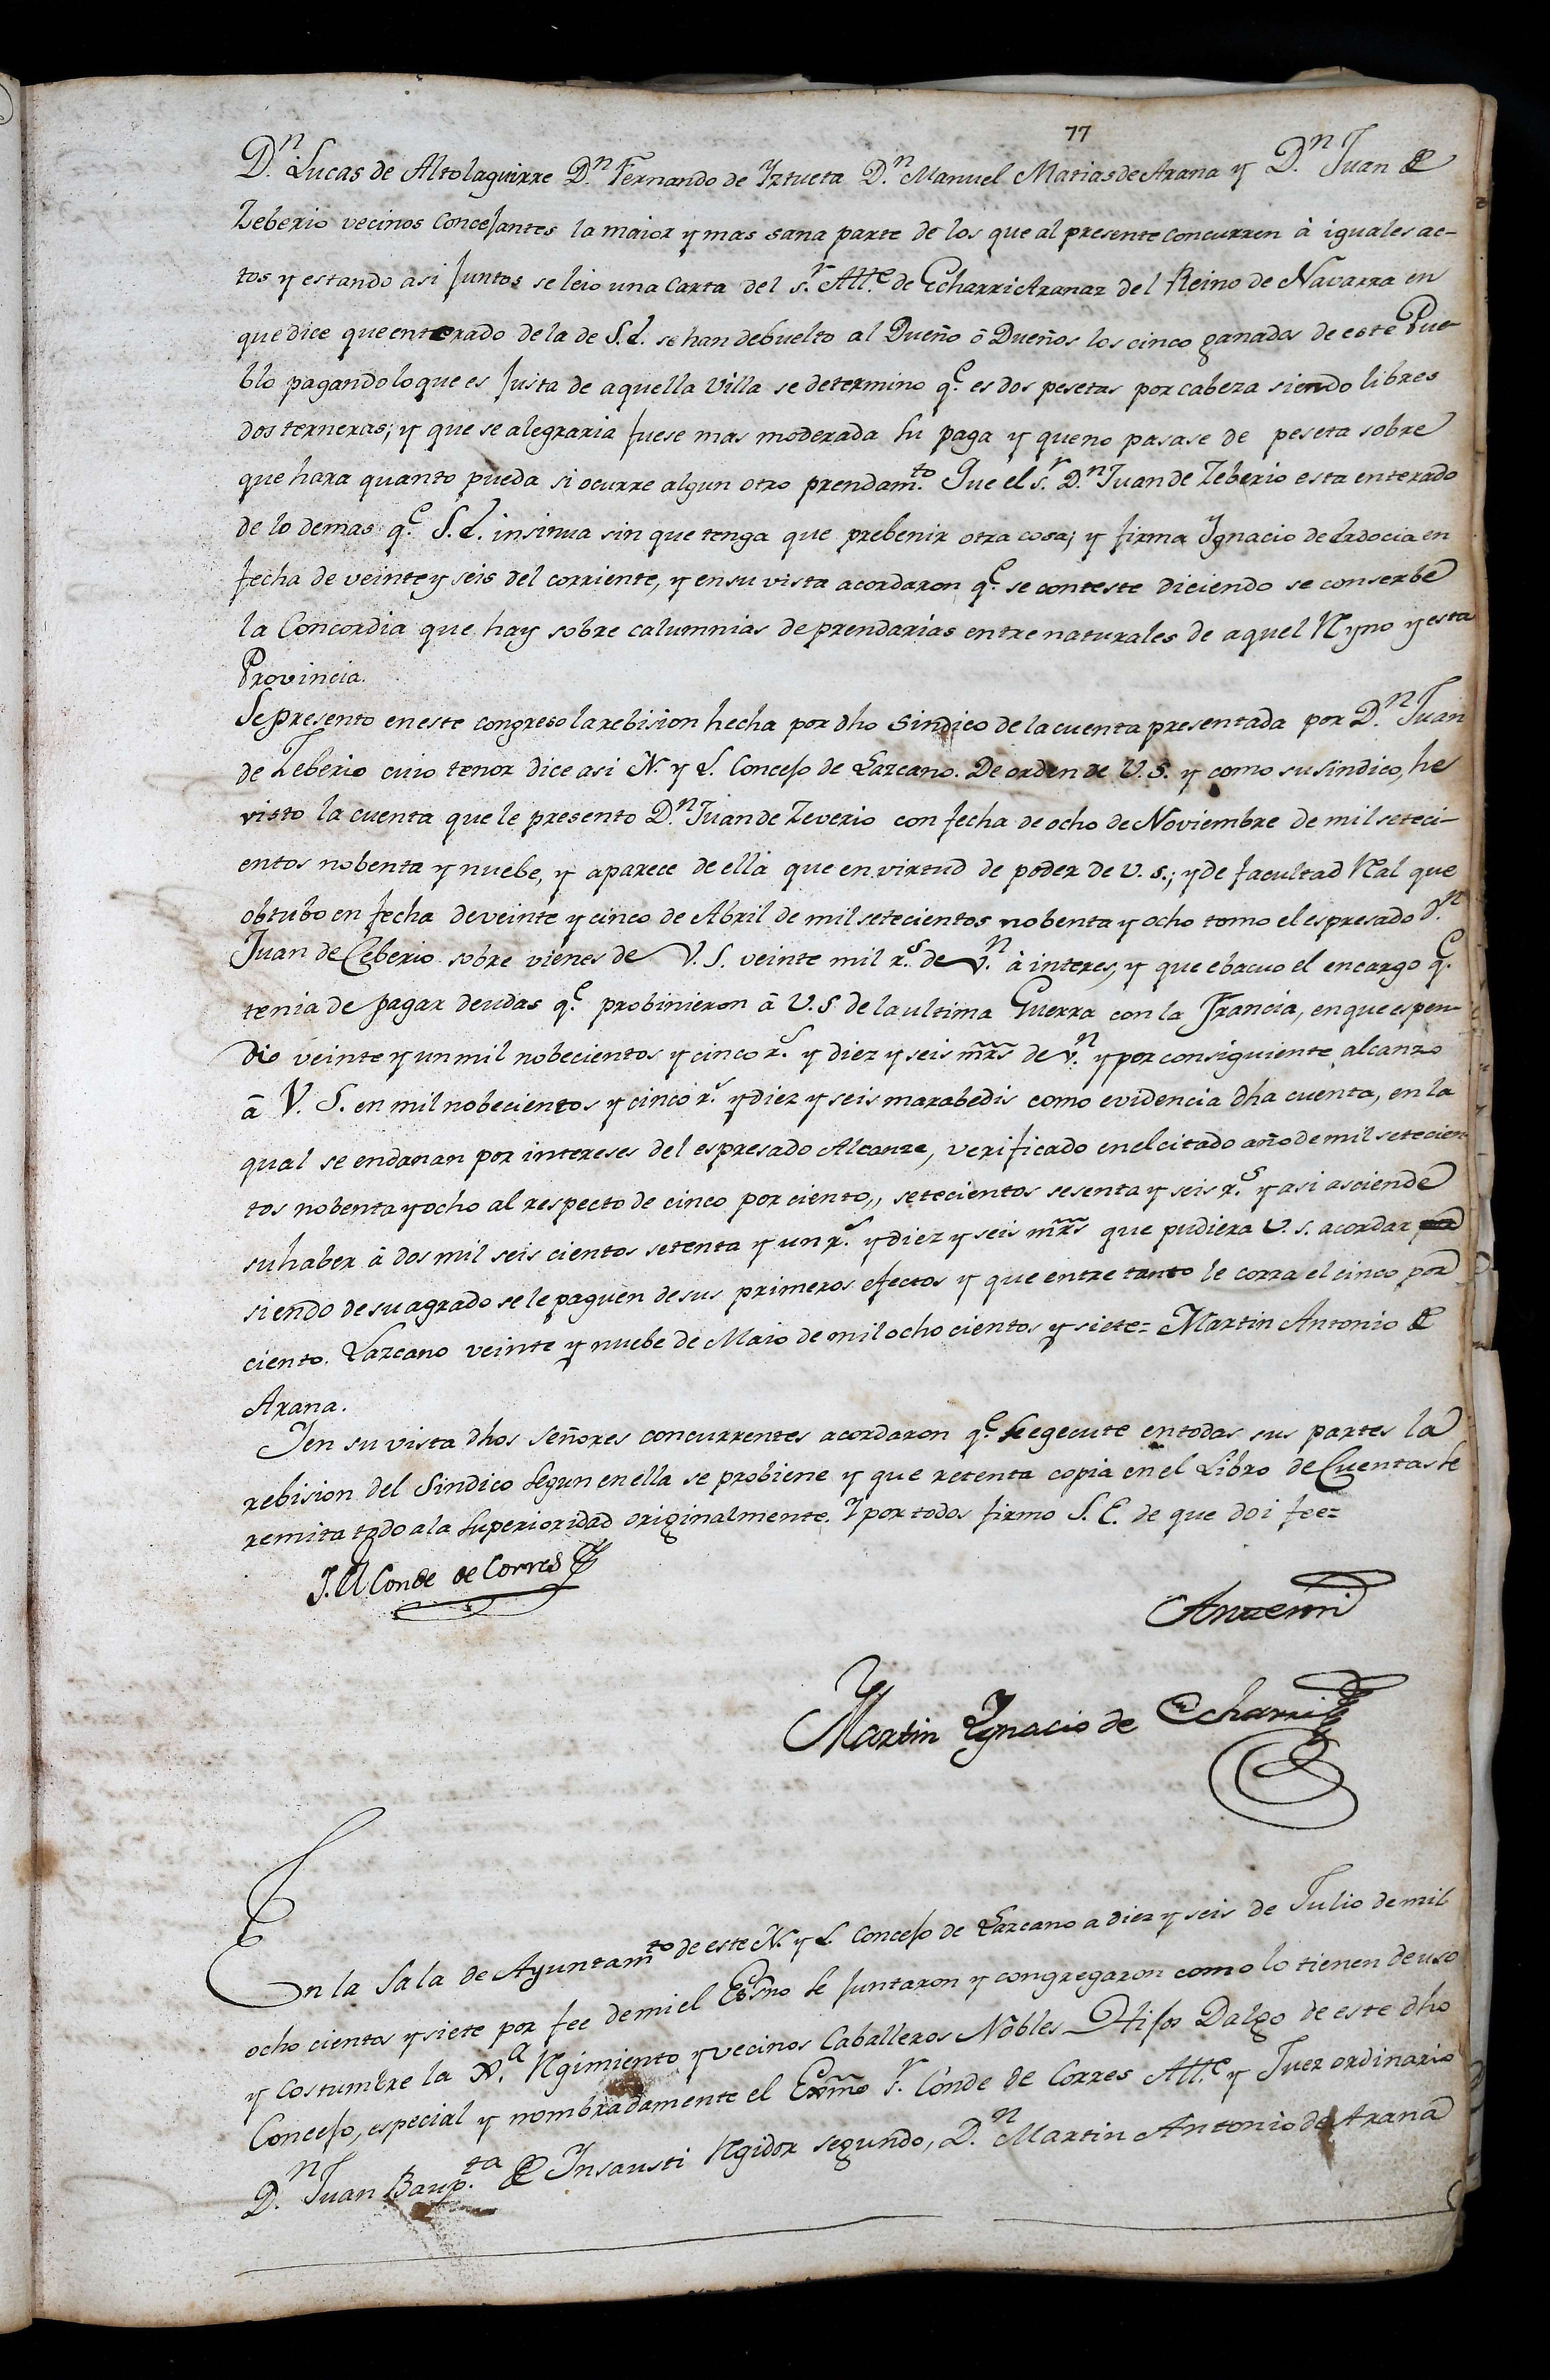 77
D.n Lucas de Altolaguirre D.n Fernando de Yztueta D.n Manuel Matias de Arana y D.n Juan de
Zeberio vecinos Concejantes la maior y mas sana parte de los que al presente concurren à iguales ac-
tos y estando asi juntos se leio una Carta del s.r All.e de Echarri Aranaz del Reino de Navarra en
que dice que enterado de la de S.S. se han debuelto al Dueño ô Dueños los cinco ganados de este Pue-
blo pagando lo que es justa de aquella Villa se determino q.e es dos pesetas por cabeza siendo libres
dos terneras; y que se alegraria fuese mas moderada su paga y que no pasase de peseta sobre
que hara quanto pueda si ocurre algun otro prendam.to Que el s.r D.n Juan de Zeberio esta enterado
de lo demas q.e S.S. insinua sin que tenga que prebenir otra cosa; y firma Ygnacio de Erdocia en
fecha de veinte y seis del corriente, y en su vista acordaron q.e se conteste diciendo se conserbe
la Concordia que hay sobre calumnias de prendarias entre naturales de aquel Ryno y esta
Provincia.
Se presento en este congreso la rebision hecha por dho Sindico de la cuenta presentada por D.n Juan
de Zeberio cuio tenor dice asi N. y L. Concejo de Lazcano. De orden de V.S. y como su Sindico, he
visto la cuenta que le presento D.n Juan de Zeverio con fecha de ocho de Noviembre de mil seteci-
entos nobenta y nuebe, y aparece de ella que en virtud de poder de V.S.; y de facultad Ral que
obtubo en fecha de veinte y cinco de Abril de mil setecientos nobenta y ocho tomo el espresado d.n
Juan de Ceberio sobre vienes de V.S. veinte mil r.s de v.n à interes, y que ebacuo el encargo q.e
tenia de pagar deudas q.e probinieron â V.S. de la ultima Guerra con la Francia, en que espen-
dio veinte y un mil nobecientos y cinco r.s y diez y seis mrs de v.n y por consiguiente alcanzo
â V.S. en mil nobecientos y cinco r.s y diez y seis marabedis como evidencia dha cuenta, en la
qual se endanan por intereses del espresado Alcanze, verificado en el citado año de mil setecien
tos nobenta y ocho al respecto de cinco por ciento,, setecientos sesenta y seis r.s y asi asciende
su haber â dos mil seis cientos setenta y un r.s y diez y seis mrs que pudiera V.S. acordar
siendo de su agrado se le paguen de sus primeros efectos y que entre tanto le corra el cinco por
ciento. Lazcano veinte y nuebe de Maio de mil ocho cientos y siete= Martin Antonio de
Arana.
Y en su vista dhos Señores concurrentes acordaron q.e se egecute en todas sus partes la
rebision del Sindico segun en ella se probiene y que retenta copia en el Libro de Cuentas se
remita todo a la Superioridad originalmente. Y por todos firmo S.E. de que doi fee=
J. El Conde de Corres
Antemi
Martin Ygnacio de Echarri
En la Sala de Ayuntam.to de este N. y L Concejo de Lazcano a diez y seis de Julio de mil
ocho cientos y siete por fee de mi el Essno se juntaron y congregaron como lo tienen de uso
y costumbre la N.a Rgimiento y vecinos Caballeros Nobles Hijos Dalgo de este dho
Concejo, especial y nombradamente el Exmo s.r Conde de Corres All.e y Juez ordinario
D.n Juan Baup.ta de Insausti Rgidor segundo, D.n Martin Antonio de Arana